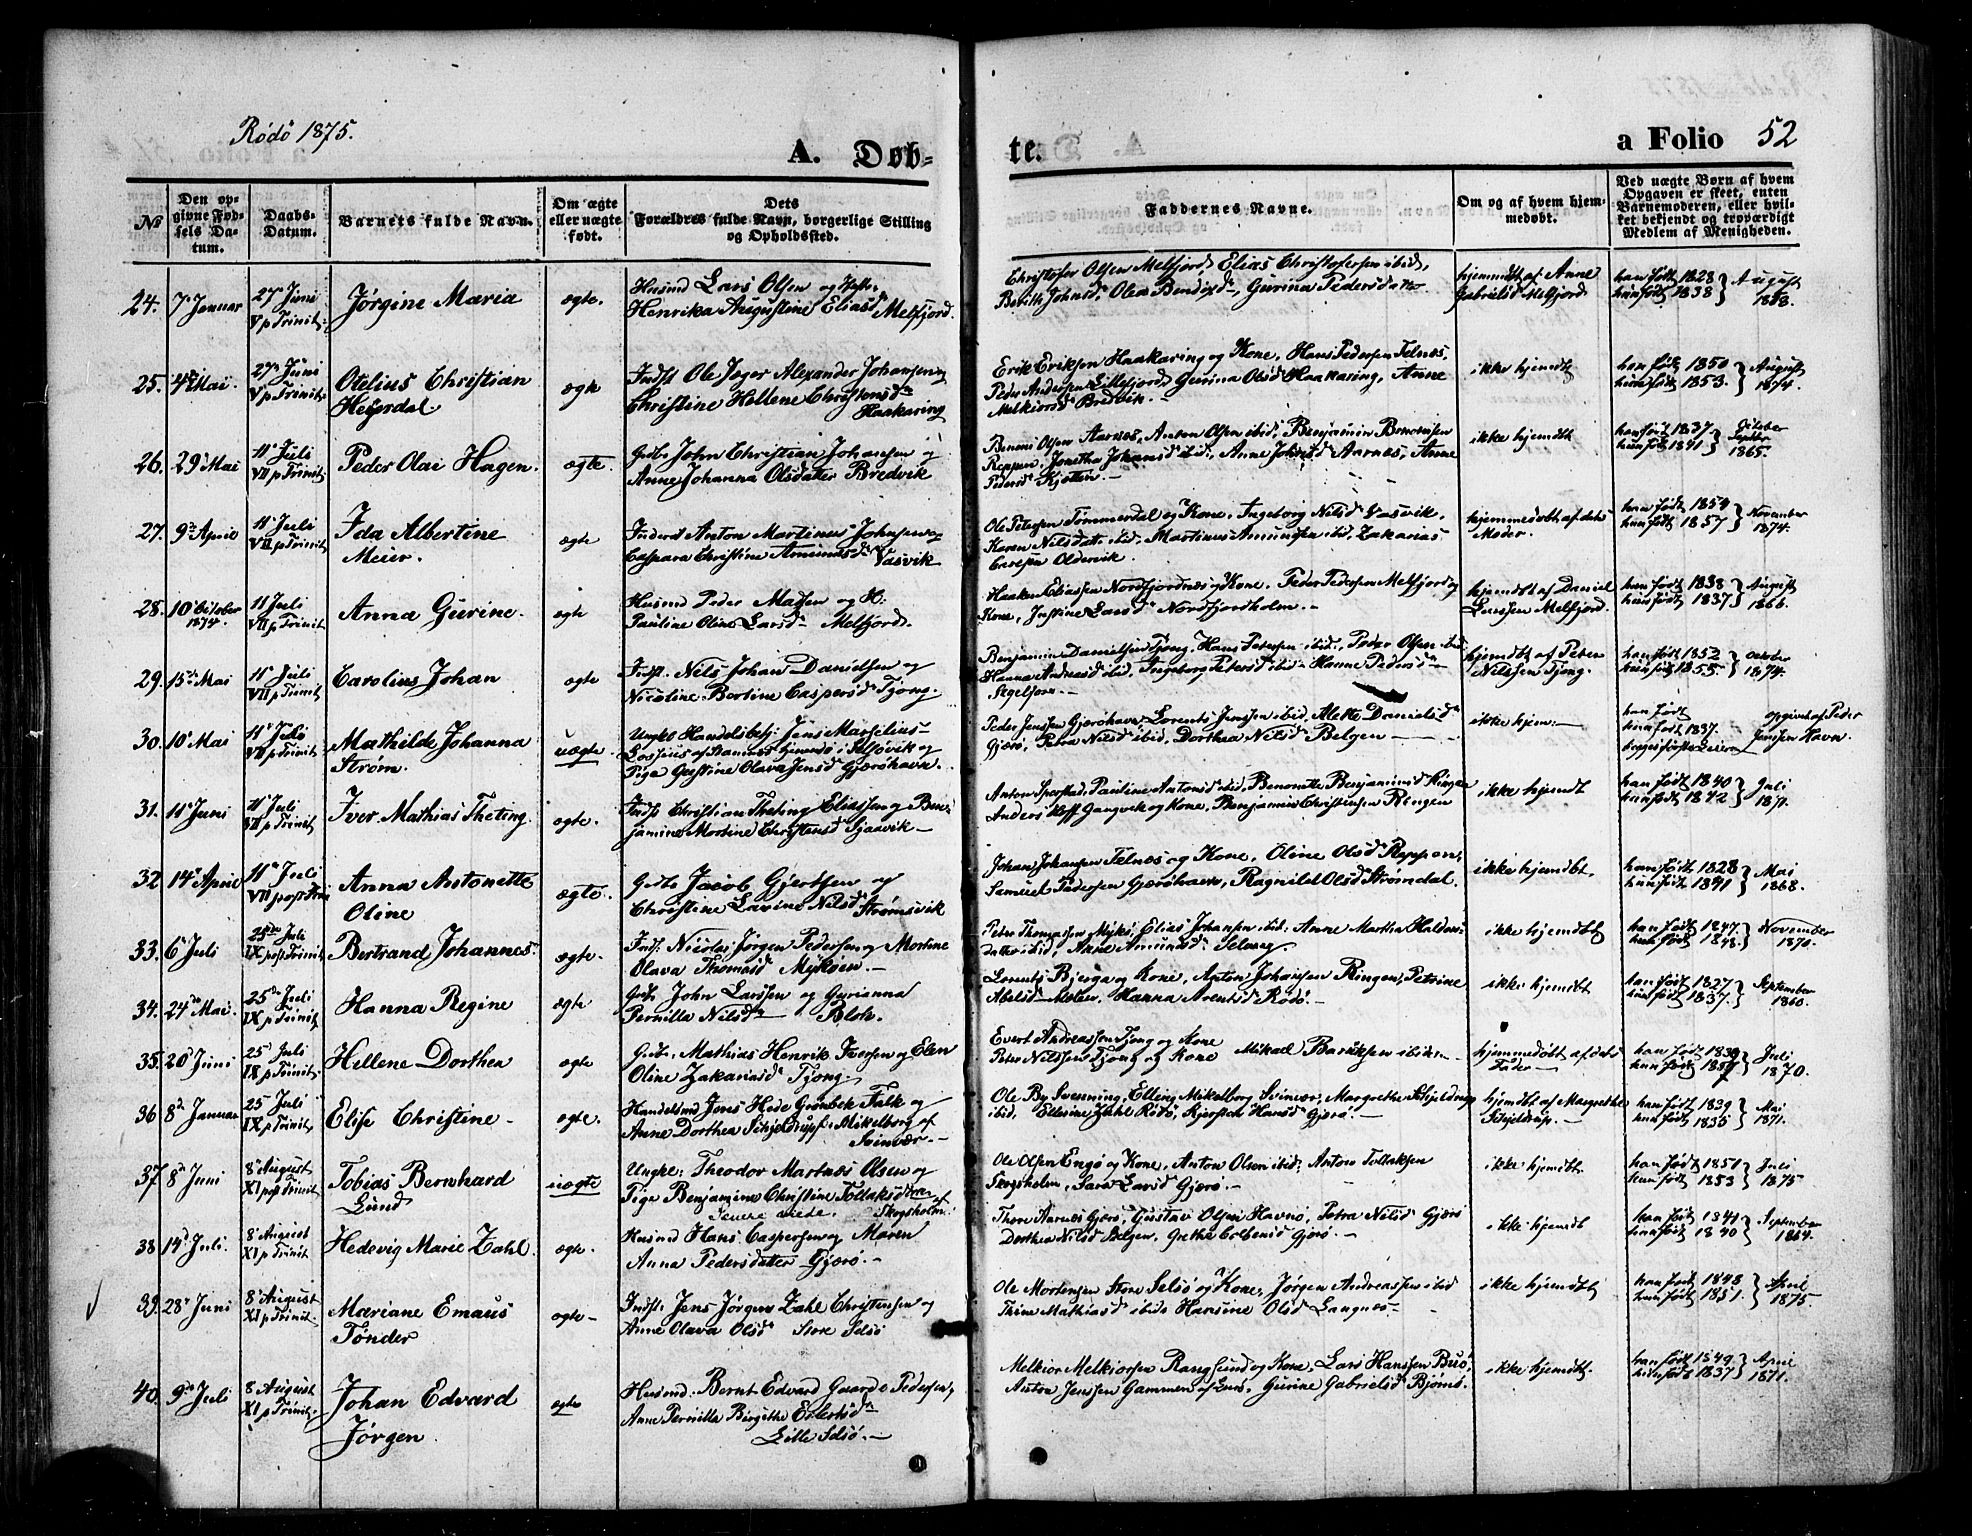 Rödö 1875.
A. Døb-
te.
a Folio 52
№
Den opgivne Fødsels Datum.
Daabs-Datum.
Barnets fulde Navn.
Om ægte eller uægte født.
Dets Forældres fulde Navn, borgerlige Stilling og Opholdssted.
Faddernes Navne.
Om og af hvem hjemmedøbt.
Ved uægte Børn af hvem Opgaven er skeet, enten Barnemoderen, eller hvilket bekjendt og troværdigt Medlem af Menigheden.
24. 7 Januar 27 Juni V p Trinit. Jørgine Maria ægte. Husmd Lars Olsen og Hustr. Henrika Augustine Eliasd Melfjord.
Christofer Olsen Melfjord, Elias Christofersen ibid, Berith Johnsd, Olea Bendixd, Gurina Pedersdatter
hjemmdt af Anne Gabrielsd Melfjord
han født 1828 hun født 1838 August
25. 4 Mai 27 Juni V p Trinit. Otelius Christian Heyerdal ægte Indst Ole Jæger Alexander Johansen og Christine Hellene Christensd Haakaring
Erik Eriksen Haakaring og Kone, Hans Pedersen Telnes, Peder Andersen Lillefjord, Gurina Olsd Haakaring, Anne Melkiorsd Bredvik.
ikke hjemdt
han født 1850 hun født 1853. August 1874.
26. 29 Mai 11 Juli VII p Trinit Peder Olai Hagen. ægte. Grbr John Christian Johansen og Anne Johanna Olsdatter Bredvik
Benoni Olsen Aarnes, Anton Olsen ibid, Benjamin Benonisen Reppen, Jonetha Johansd ibid, Anne Johnsd Aarnes, Anne Pedersd Kjøtten.
ikke hjemdt
han født 1837 hun født 1841 1865.
27. 9 April 11 Juli VII p Trinit Ida Albertine Meier. ægte Inderst Anton Martinus Johnsen og Caspara Christine Amundsd Vasvik
Ole Petersen Tømmerdal og Kone, Ingeborg Nilsd Vasvik, Karen Nilsdatr ibid, Martinus Amundsen ibid, Zakarias Oldervik
hjemmedøbt af dets Moder.
han født 1854 hun født 1857 November 1874.
28. 10 October 1874. 11 Juli VII p Trinit Anna Gurine. ægte Husmd Peder Matsen og H: Pauline Oline Larsd Melfjord.
Haaken Eliassen Nordfjordnes og Kone. Peder Pedersen Melfjord og Kone, Justine Larsd Nordfjordholm.
hjemdt af Daniel Larssen Melfjord.
han født 1838 hun født 1837 August 1866.
29. 15 Mai 11 Juli VII p Trinit Carolius Johan ægte Indst. Nils Johan Danielsen og Nicoline Bertine Caspersd Tjong.
Benjamin Danielsen Tjong, Hans Petersen ibid, Peder Olsen ibid Hanna Andreasd ibid, Ingeborg Petersd ibid Hanne Pedersd Segelfore.
hjemdt af Peter Nilssen Tjong.
han født 1852 hun født 1855. October 1874.
30. 10 Mai 11 Juli VII p Trinit Mathilde Johanna Strøm. uægte. Ungkl Handelsbetj: Jens Marselius Lossius af og Pige Gustine Olava Jensd Gjærøhavn.
Peder Jenssen Gjærøhavn, Lorents Jenssen ibid, Mette Danielsd Gjærø, Petra Nilsd ibid, Dorthea Nilsd Bolgen
ikke hjem:
han født hun født 1837. begges første Leier opgivet af Peder Jenssen Havn.
31. 11 Juni 11 Juli VII p Trinit Iver Mathias Theting. ægte. Indst Christian Theting Eliassen og Benjamine Mortine Christensd Sjaavik
Anton Sportsd, Pauline Antonsd ibid, Benonette Benjaminsd Ringen Anders Hoff Gangvek og Kone, Benjamin Christensen Ringen
ikke hjemdt
han født 1840 hun født 1842 Juli
32 14 April 11 Juli VII post Trin Anna Antonette Oline ægte. Grbr Jacob Gjertsen og Christine Lavine Nilsd Strømsvik
Johan Johansen Telnæs og Kone, Oline Olsd Reppen, Samuel Pedersen Gjærøhavn, Ragnild Olsd Strømdal.
ikke hjemdbt,
han født 1828 hun født 1841 Mai 1868.
33. 6 Juli 25 Juli IX post Trinit Bertrand Johannes. ægte. Indst. Nicolai Jørgen Pedersen og Mortine Olava Thomasd Myköen.
Peter Thomassen Myke, Elias Johansen ibid. Anne Martha Haldorsdatter ibid, Anne Amundsd Selsøg
ikke hjemdbt
han født 1847. hun født 1848. November 1870.
34. 24 Mai. 25 Juli IX p Trinit Hanna Regine ægte Grbr John Larssen og Gurianna Pernilla Nilsd Blok.
Lorents Bjerga og Kone, Anton Johansen Ringen, Petrine Abelsd Melen, Hanna Arentsd Rödö.
ikke hjemdbt
han født 1827 hun født 1837. September 1860.
35. 20 Juni 25 Juli IX p Trinit Hellene Dorthea ægte Grbr. Mathias Henrik Iversen og Elen Oline Zakariasd Tjong
Evert Andreassen Tjong og Kone Peter Nilssen Tjong og Kone Mikael Baruksen ibidem
hjemmedøbt af dets Fader
han født 1839 hun født Juli 1870.
36 8 Januar 25 Juli IX p Trinit Elise Christine ægte. Handelsmd Jens Hede Grønbek Falk og Anne Dorthea Schjeldrup f: Mikelborg af Svinvær.
Ole By Svenning, Elling Mikelborg Svinvær, Margrethe Schjeldrup ibid, Ellevine Zahl Rödö, Kjersten Hansd Gjerö.
hjemdbt af Margrethe Schjeldrup.
han født 1839 hun født 1835 Mai 1871.
37. 8 Juni 8 August XI post Trinit Tobias Bernhard Lund uægte Ungkl: Theodor Martnes Olsen og Pige Benjamine Christine Tollaksd af Skogsholm. Senere viede.
Ole Olsen Engö og Kone, Anton Olsen ibid. Anton Tollaksen Skogsholm, Sara Larsd Gjærö.
ikke hjemdbt
han født 1851 hun født 1853 Juli 1875
38 14 Juli. 8 August XI p Trinit Hedevig Marie Zahl. ægte. Husmd Hans Caspersen og Maren Anna Pedersdatter Gjærö.
Thore Aarnes Gjærö, Gustav Olsen Havnö, Petra Nilsd Gjærö Dorthea Nilsd Bolgen, Grethe Gjerö.
ikke hjemdbt
han født 1841 hun født 1840 September 1864.
39. 28 Juni 8 August XI p Trinit. Mariane Emaus Tønder ægte Indst: Jens Jørgen Zahl Christensen og Anne Olava Olsd Store Selsö
Ole Mortensen Store Selsö og Kone, Jørgen Andreassen ibid Trine Mathiasd ibid, Hansine Olsd Langnes
ikke hjemdbt
han født 1848 hun født 1851. April 1875.
40. 9 Juli 8 August XI p Trinit. Johan Edvard Jörgen. ægte Husmd. Bernt Edvard Gaarde Pedersen, Anne Pernilla Birgithe Lille Selsö.
Melkior Melkiorsen Rangsund og Kone, Lars Hanssen Buö, Anton Jenssen Gammen af Lurö, Gurine Gabrielsd Bjørnö.
ikke hjemdbt.
han født 1849 hun født 1837 April 1871.